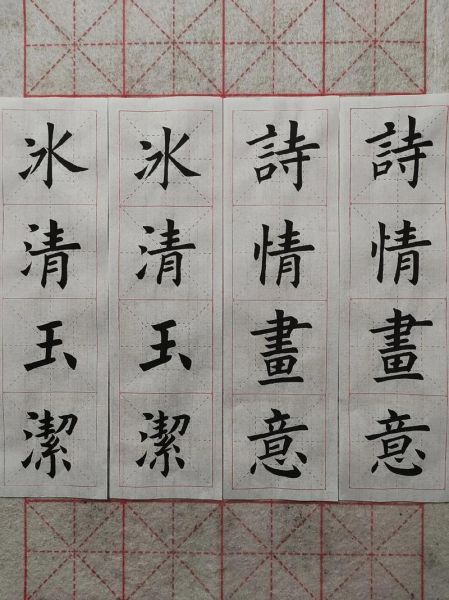 詩情畫意
詩情畫意
冰清玉潔
冰清玉潔